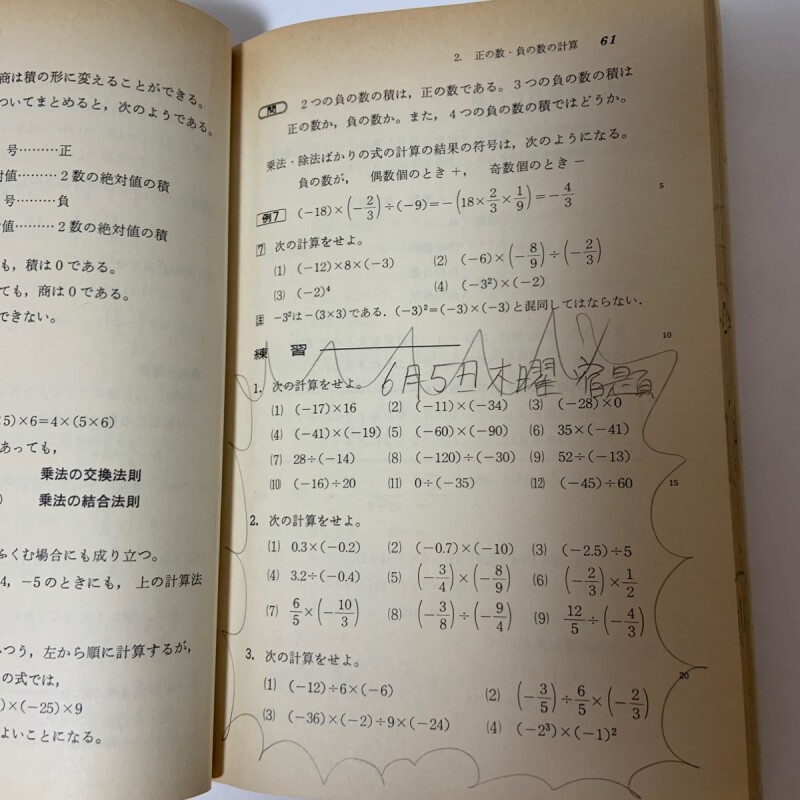 商は積の形に変えることができる。
ついてまとめると，次のようである。
号………正
対値………２数の絶対値の積
号………負
値………２数の絶対値の積
も，積は０である。
ても，商は０である。
できない。
5)×6＝4×(5×6)
あっても，
乗法の交換法則
乗法の結合法則
ふくむ場合にも成り立つ。
4，−5のときにも，上の計算法
つう，左から順に計算するが，
の式では，
)×(−25)×9
よいことになる。
2. 正の数・負の数の計算 61
問 ２つの負の数の積は，正の数である。３つの負の数の積は
正の数か，負の数か。また，４つの負の数の積ではどうか。
乗法・除法ばかりの式の計算の結果の符号は，次のようになる。
負の数が， 偶数個のとき＋， 奇数個のとき−
5
例7 (−18)×(−2/3)÷(−9)＝−(18×2/3×1/9)＝−4/3
7 次の計算をせよ。
(1) (−12)×8×(−3) (2) (−6)×(−8/9)÷(−2/3)
(3) (−2)⁴ (4) (−3²)×(−2)
注 −3²は−(3×3)である．(−3)²＝(−3)×(−3)と混同してはならない．
10
練 習
6月5日木曜 宿題
1. 次の計算をせよ。
(1) (−17)×16 (2) (−11)×(−34) (3) (−28)×0
(4) (−41)×(−19) (5) (−60)×(−90) (6) 35×(−41)
(7) 28÷(−14) (8) (−120)÷(−30) (9) 52÷(−13)
(10) (−16)÷20 (11) 0÷(−35) (12) (−45)÷60 15
2. 次の計算をせよ。
(1) 0.3×(−0.2) (2) (−0.7)×(−10) (3) (−2.5)÷5
(4) 3.2÷(−0.4) (5) (−3/4)×(−8/9) (6) (−2/3)×1/2
(7) 6/5×(−10/3) (8) (−3/8)÷(−9/4) (9) 12/5÷(−4/3)
3. 次の計算をせよ。 20
(1) (−12)÷6×(−6) (2) (−3/5)÷6/5×(−2/3)
(3) (−36)×(−2)÷9×(−24) (4) (−2³)×(−1)²